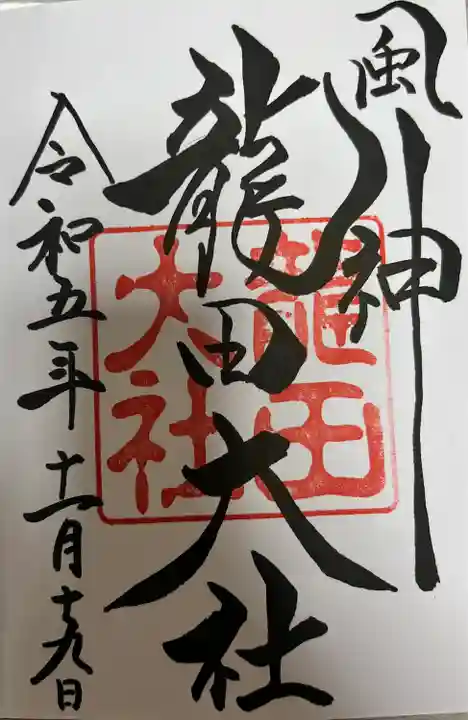 風神
龍田大社
龍田
大社
令和五年十一月十九日